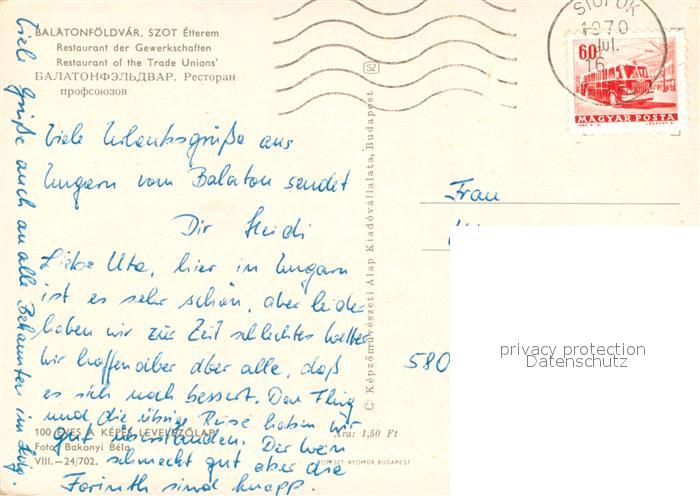 BALATONFÖLDVÁR. SZOT Étterem
Restaurant der Gewerkschaften
Restaurant of the Trade Unions'
БАЛАТОНФЭЛЬДВАР. Ресторан
профсоюзов
SIÓFOK
1970
Jul.
16
60f
MAGYAR POSTA
SZ
Viele Urlaubsgrüße aus
Ungarn vom Balaton sendet
Dir Heidi
Liebe Uta, hier in Ungarn
ist es sehr schön, aber leider
haben wir zur Zeit schlechtes Wetter
Wir hoffen aber alle, daß
es sich noch bessert. Den Flug
und die übrige Reise haben wir
gut überstanden. Der Wein
schmeckt gut aber die
Forinth sind knapp.
Viele Grüße auch an alle Bekannten im
Frau
580
100 ÉVES A KÉPES LEVELEZŐLAP
Ára: 1,50 Ft
Foto: Bakonyi Béla
VIII.—24/702.
OFFSET-NYOMDA, BUDAPEST
© Képzőművészeti Alap Kiadóvállalata, Budapest
privacy protection
Datenschutz